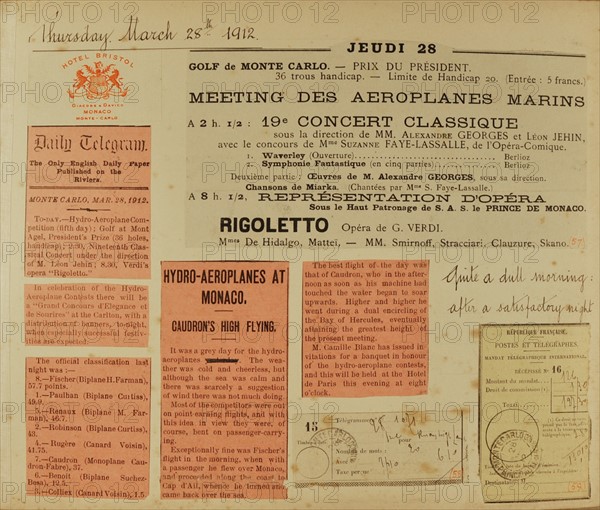 Thursday March 28th 1912.
HOTEL BRISTOL
MONACO
MONTE-CARLO
JEUDI 28
GOLF de MONTE CARLO. — PRIX DU PRÉSIDENT.
36 trous handicap. — Limite de Handicap 20. (Entrée : 5 francs.)
MEETING DES AEROPLANES MARINS
A 2 h. 1/2 : 19e CONCERT CLASSIQUE
sous la direction de MM. ALEXANDRE GEORGES et LÉON JEHIN,
avec le concours de Mme SUZANNE FAYE-LASSALLE, de l'Opéra-Comique.
1. Waverley (Ouverture) Berlioz
2. Symphonie Fantastique (en cinq parties) Berlioz
Deuxième partie : Œuvres de M. Alexandre GEORGES, sous sa direction.
Chansons de Miarka. (Chantées par Mme S. Faye-Lassalle.)
A 8 h. 1/2, REPRÉSENTATION D'OPÉRA
Sous le Haut Patronage de S. A. S. le PRINCE DE MONACO.
RIGOLETTO Opéra de G. VERDI.
Mmes De Hidalgo, Mattei, — MM. Smirnoff, Stracciari, Clauzure, Skano.
Daily Telegram.
The Only English Daily Paper
Published on the
Riviera.
MONTE CARLO, MAR. 28, 1912.
TO-DAY.—Hydro-Aeroplane Com-
petition (fifth day); Golf at Mont
Agel, President's Prize (36 holes,
handicap); 2.30, Nineteenth Clas-
sical Concert under the direction
of M. Léon Jehin; 8.30, Verdi's
opera "Rigoletto."
In celebration of the Hydro-
Aeroplane Contests there will be
a "Grand Concours d'Elegance et
de Sourires" at the Carlton, with a
distribution of banners, to-night,
when especially successful festivi-
ties are expected.
The official classification last
night was :—
8.—Fischer (Biplane H. Farman),
57.7 points.
1.—Paulhan (Biplane Curtiss),
49.9.
5.—Renaux (Biplane M. Far-
man), 46.7.
2.—Robinson (Biplane Curtiss),
43.
4.—Rugère (Canard Voisin),
41.75.
7.—Caudron (Monoplane Cau-
dron-Fabre), 37.
6.—Benoit (Biplane Suchez-
Besa), 12.5.
3.—Colliex (Canard Voisin), 1.5
HYDRO-AEROPLANES AT
MONACO.
CAUDRON'S HIGH FLYING.
It was a grey day for the hydro-
aeroplanes The wea-
ther was cold and cheerless, but
although the sea was calm and
there was scarcely a suggestion
of wind there was not much doing.
Most of the competitors were out
on point-earning flights, and with
this idea in view they were, of
course, bent on passenger-carry-
ing.
Exceptionally fine was Fischer's
flight in the morning, when with
a passenger he flew over Monaco,
and proceeded along the coast to
Cap d'Ail, where he turned and
came back over the sea.
The best flight of the day was
that of Caudron, who in the after-
noon as soon as his machine had
touched the water began to soar
upwards. Higher and higher he
went during a dual encircling of
the Bay of Hercules, eventually
attaining the greatest height of
the present meeting.
M. Camille Blanc has issued in-
vitations for a banquet in honour
of the hydro-aeroplane contests,
and this will be held at the Hotel
de Paris this evening at eight
o'clock.
Quite a dull morning:
after a satisfactory night
RÉPUBLIQUE FRANÇAISE.
POSTES ET TÉLÉGRAPHES.
MANDAT TÉLÉGRAPHIQUE INTERNATIONAL.
16
Montant du mandat
Taxes
Total
15
Télégramme
Mots
Taxe perçue